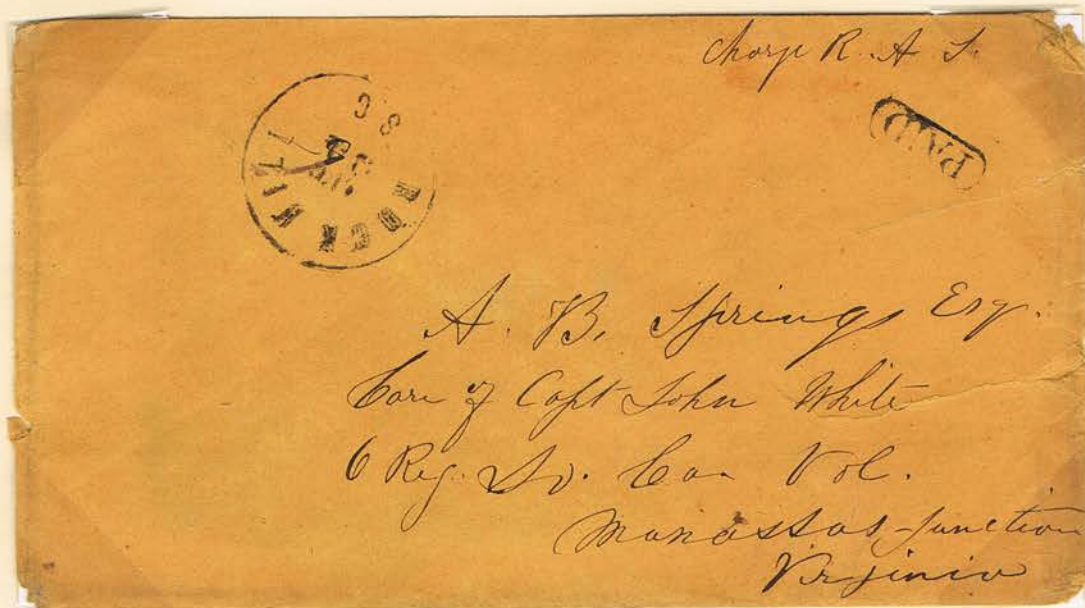 Charge R. A. S.
PAID
ROCK HILL
S C
A. B. Springs Esq.
Care of Capt John White
6 Reg. So. Car Vol.
Manassas Junction
Virginia